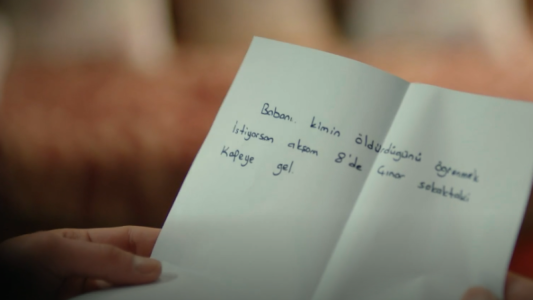 Babanı kimin öldürdüğünü öğrenmek
İstiyorsan akşam 8'de Çınar sokaktaki
Kafeye gel.